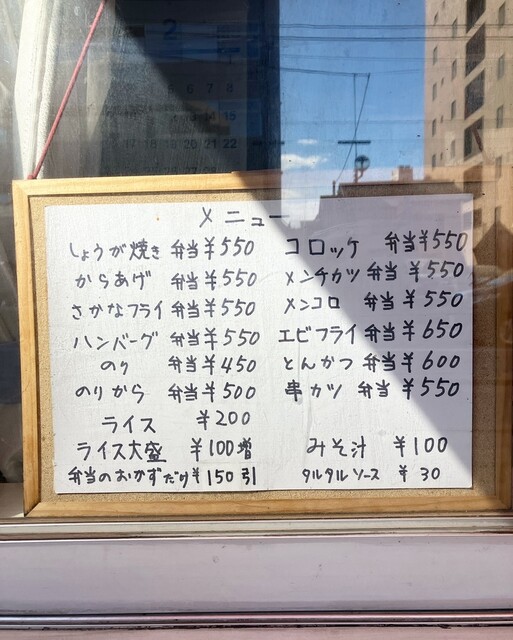 メニュー
しょうが焼き 弁当 ¥550
からあげ 弁当 ¥550
さかなフライ 弁当 ¥550
ハンバーグ 弁当 ¥550
のり 弁当 ¥450
のりから 弁当 ¥500
ライス ¥200
ライス大盛 ¥100増
弁当のおかずだけ ¥150引
コロッケ 弁当 ¥550
メンチカツ 弁当 ¥550
メンコロ 弁当 ¥550
エビフライ 弁当 ¥650
とんかつ 弁当 ¥600
串カツ 弁当 ¥550
みそ汁 ¥100
タルタルソース ¥30